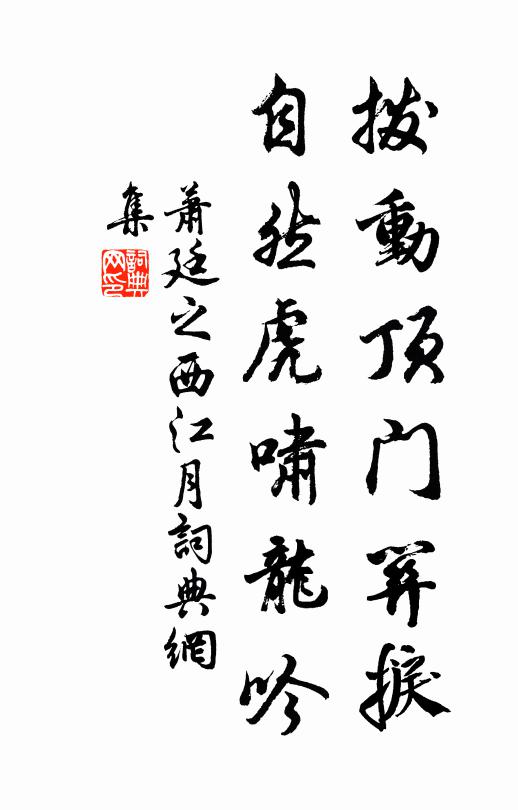 拨動顶门関捩
自然虎嘯龍吟
蕭廷之西江月詞典網
集
詞典网印